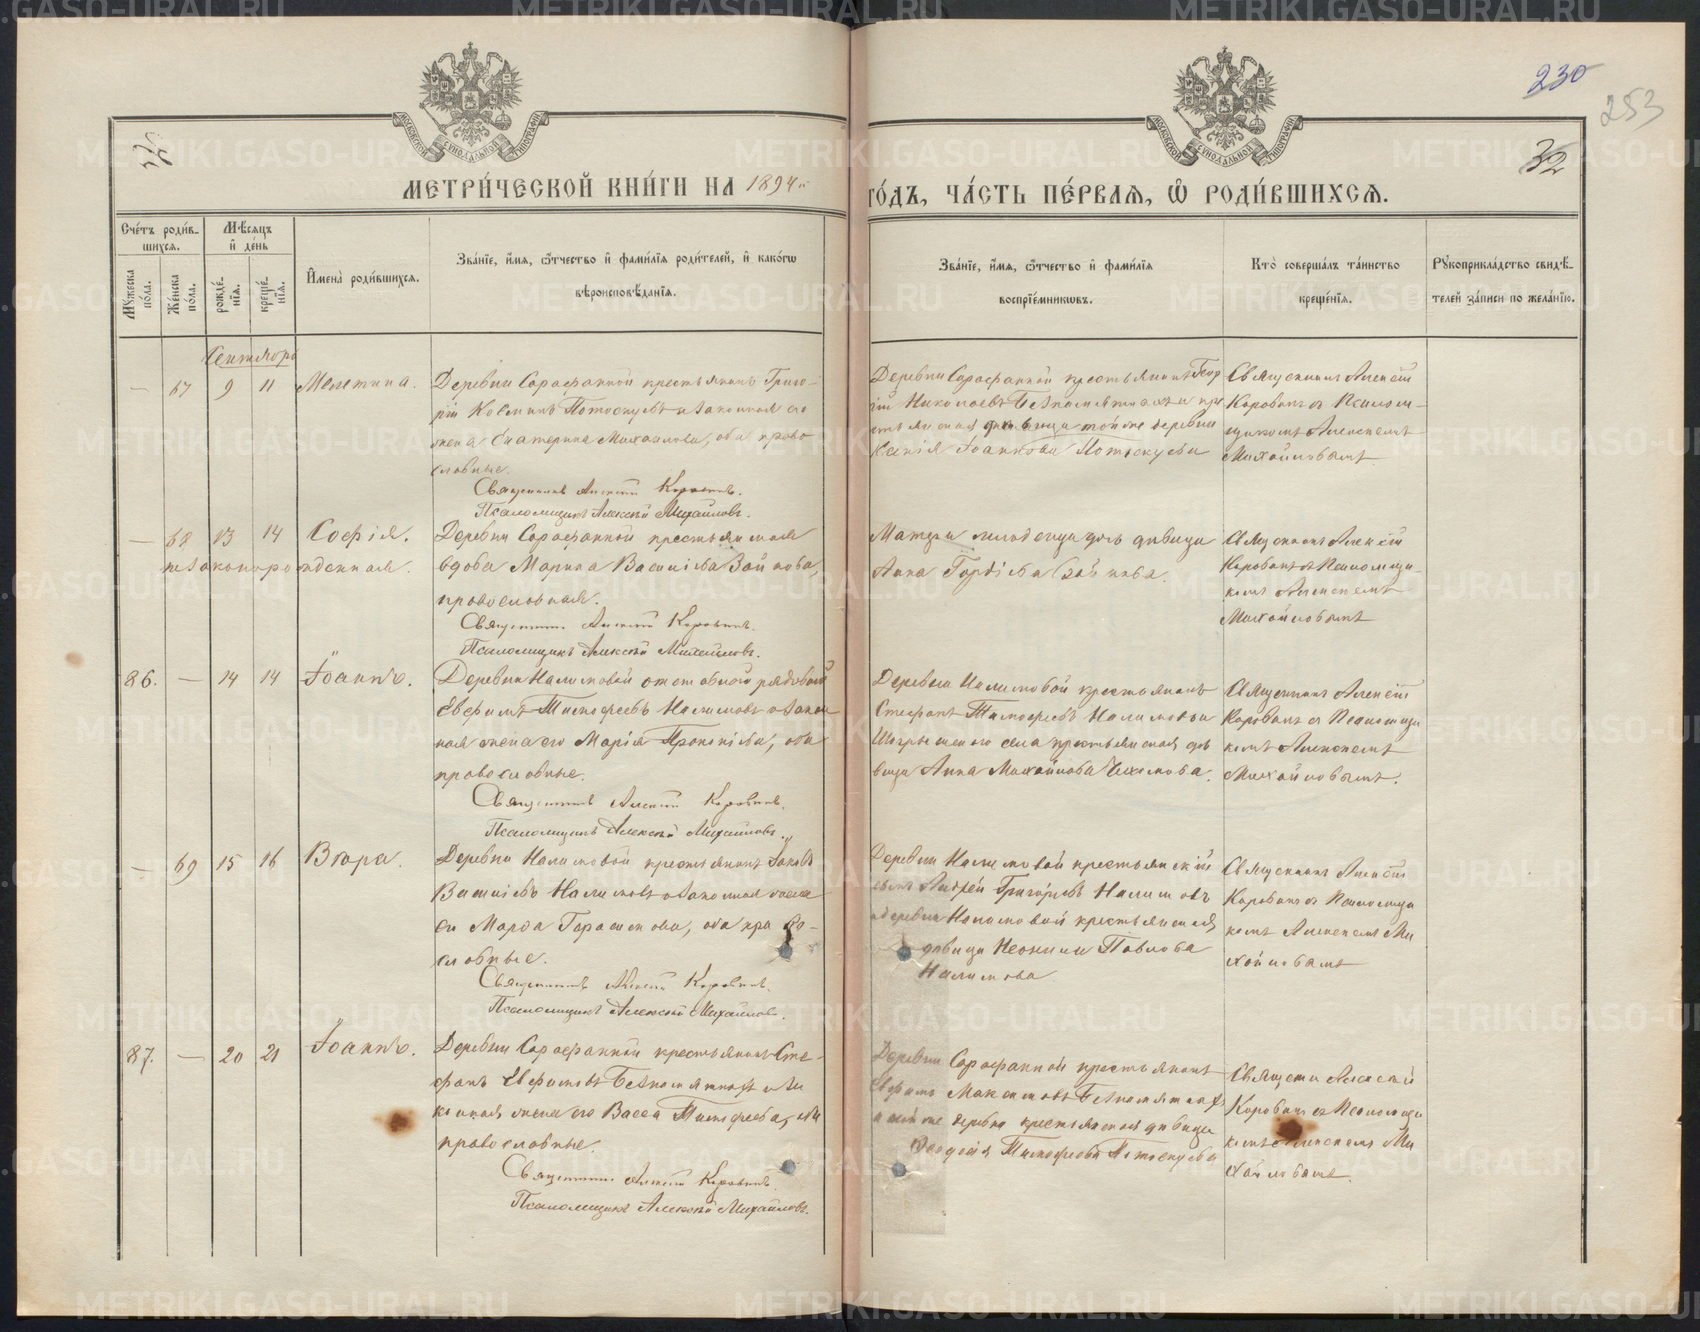 230
253
32
МОСКОВСКОЙ СѴНОДАЛЬНОЙ ТИПОГРАФІИ
МОСКОВСКОЙ СѴНОДАЛЬНОЙ ТИПОГРАФІИ
МЕТРИ́ЧЕСКОЙ КНИ́ГИ НА 1894й
ГО́ДЪ, ЧА́СТЬ ПЕ́РВАЯ, Ѡ҆ РОДИ́ВШИХСЯ.
Сче́тъ роди́в-
шихся.
Мѣ́сяцъ
и҆ де́нь
Мꙋ́жеска по́ла.
Же́нска по́ла.
рожде́-нїя.
креще́-нїя.
И҆мена̀ роди́вшихся.
Зва́нїе, и҆́мя, ѻ҆́тчество и҆ фами́лїя роди́телей, и҆ како́гѡ
вѣроисповѣ́данїя.
Зва́нїе, и҆́мя, ѻ҆́тчество и҆ фами́лїя
воспрїе́мникѡвъ.
Кто̀ соверша́лъ та́инство
креще́нїя.
Рꙋкоприкла́дство свидѣ́-
телей за́писи по жела́нїю.
Сентября
— 67 9 11
Деревни Сарафанной крестьянинъ Григо-
рій Косминъ Потоскуевъ и законная его
жена Екатерина Михаилова, оба право
славные.
Священникъ Алексій Коровинъ.
Псаломщикъ Алексѣй Михайловъ.
Деревни Сарафанной крестьянинъ Геор
гій Николаевъ Безпамятныхъ и кре
стьянская дѣвица той же деревни
Іоаннова Потоскуева
Священникъ Алексій
Коровинъ съ Псалом-
щикомъ Алексѣемъ
Михайловымъ
— 68 13 14 Софія.
незаконорожденная.
Деревни Сарафанной крестьянская
вдова Марина Васильева Зайкова,
православная.
Священникъ Алексій Коровинъ.
Псаломщикъ Алексѣй Михайловъ.
Матери дѣвица
Анна Гордѣева Зайкова.
Священникъ Алексій
Коровинъ съ Псаломщи-
комъ Алексѣемъ
Михайловымъ
86. — 14 14 Іоаннъ.
Деревни Налимовой отставной рядовой
Евфимъ Тимофеевъ Налимовъ и закон
ная жена его Марія Прокопіева, оба
православные.
Священникъ Алексій Коровинъ.
Псаломщикъ Алексѣй Михайловъ.
Деревни Налимовой крестьянинъ
Стефанъ Тимофеевъ Налимовъ и
села крестьянская дѣ
вица Анна Михайлова
Священникъ Алексій
Коровинъ съ Псаломщи
комъ Алексѣемъ
Михайловымъ.
— 69 15 16 Вѣра.
Деревни Налимовой крестьянинъ Іаковъ
Васильевъ Налимовъ и законная жена
его Марѳа Герасимова, оба право-
славные.
Священникъ Алексій Коровинъ.
Псаломщикъ Алексѣй Михайловъ.
Деревни Налимовой крестьянскій
сынъ Андрей Григорьевъ Налимовъ
и деревни Налимовой крестьянская
дѣвица Неонила Павлова
Налимова
Священникъ Алексій
Коровинъ съ Псаломщи
комъ Алексѣемъ Ми
хайловымъ
87. — 20 21 Іоаннъ.
Деревни Сарафанной крестьянинъ Сте-
фанъ Евфимовъ Безпамятныхъ и за
конная жена его Васса Тимофеева, оба
православные.
Священникъ Алексій Коровинъ.
Псаломщикъ Алексѣй Михайловъ.
Деревни Сарафанной крестьянинъ
Евфимъ Максимовъ Безпамятныхъ
и той же деревни крестьянская дѣвица
Ѳеодосія Тимофеева Потоскуева
Священ Алексій
Коровинъ съ Псаломщи
комъ Алексѣемъ Ми
хайловымъ.
METRIKI.GASO-URAL.RU